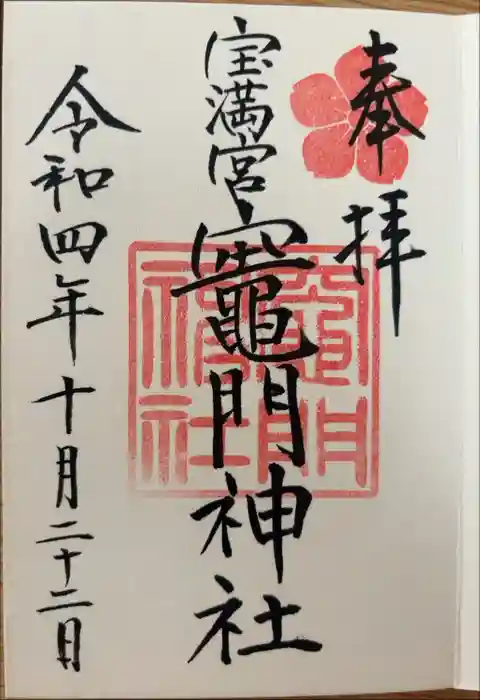 奉拝
宝満宮竈門神社
竈門神社
令和四年十月二十二日